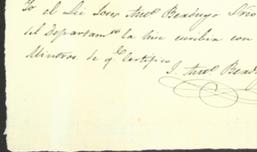 Yo el Lic Jose Anto Berdugo Srio
del Departamto la hice escribir con
Ministros de q Certifico
J. Anto Berd